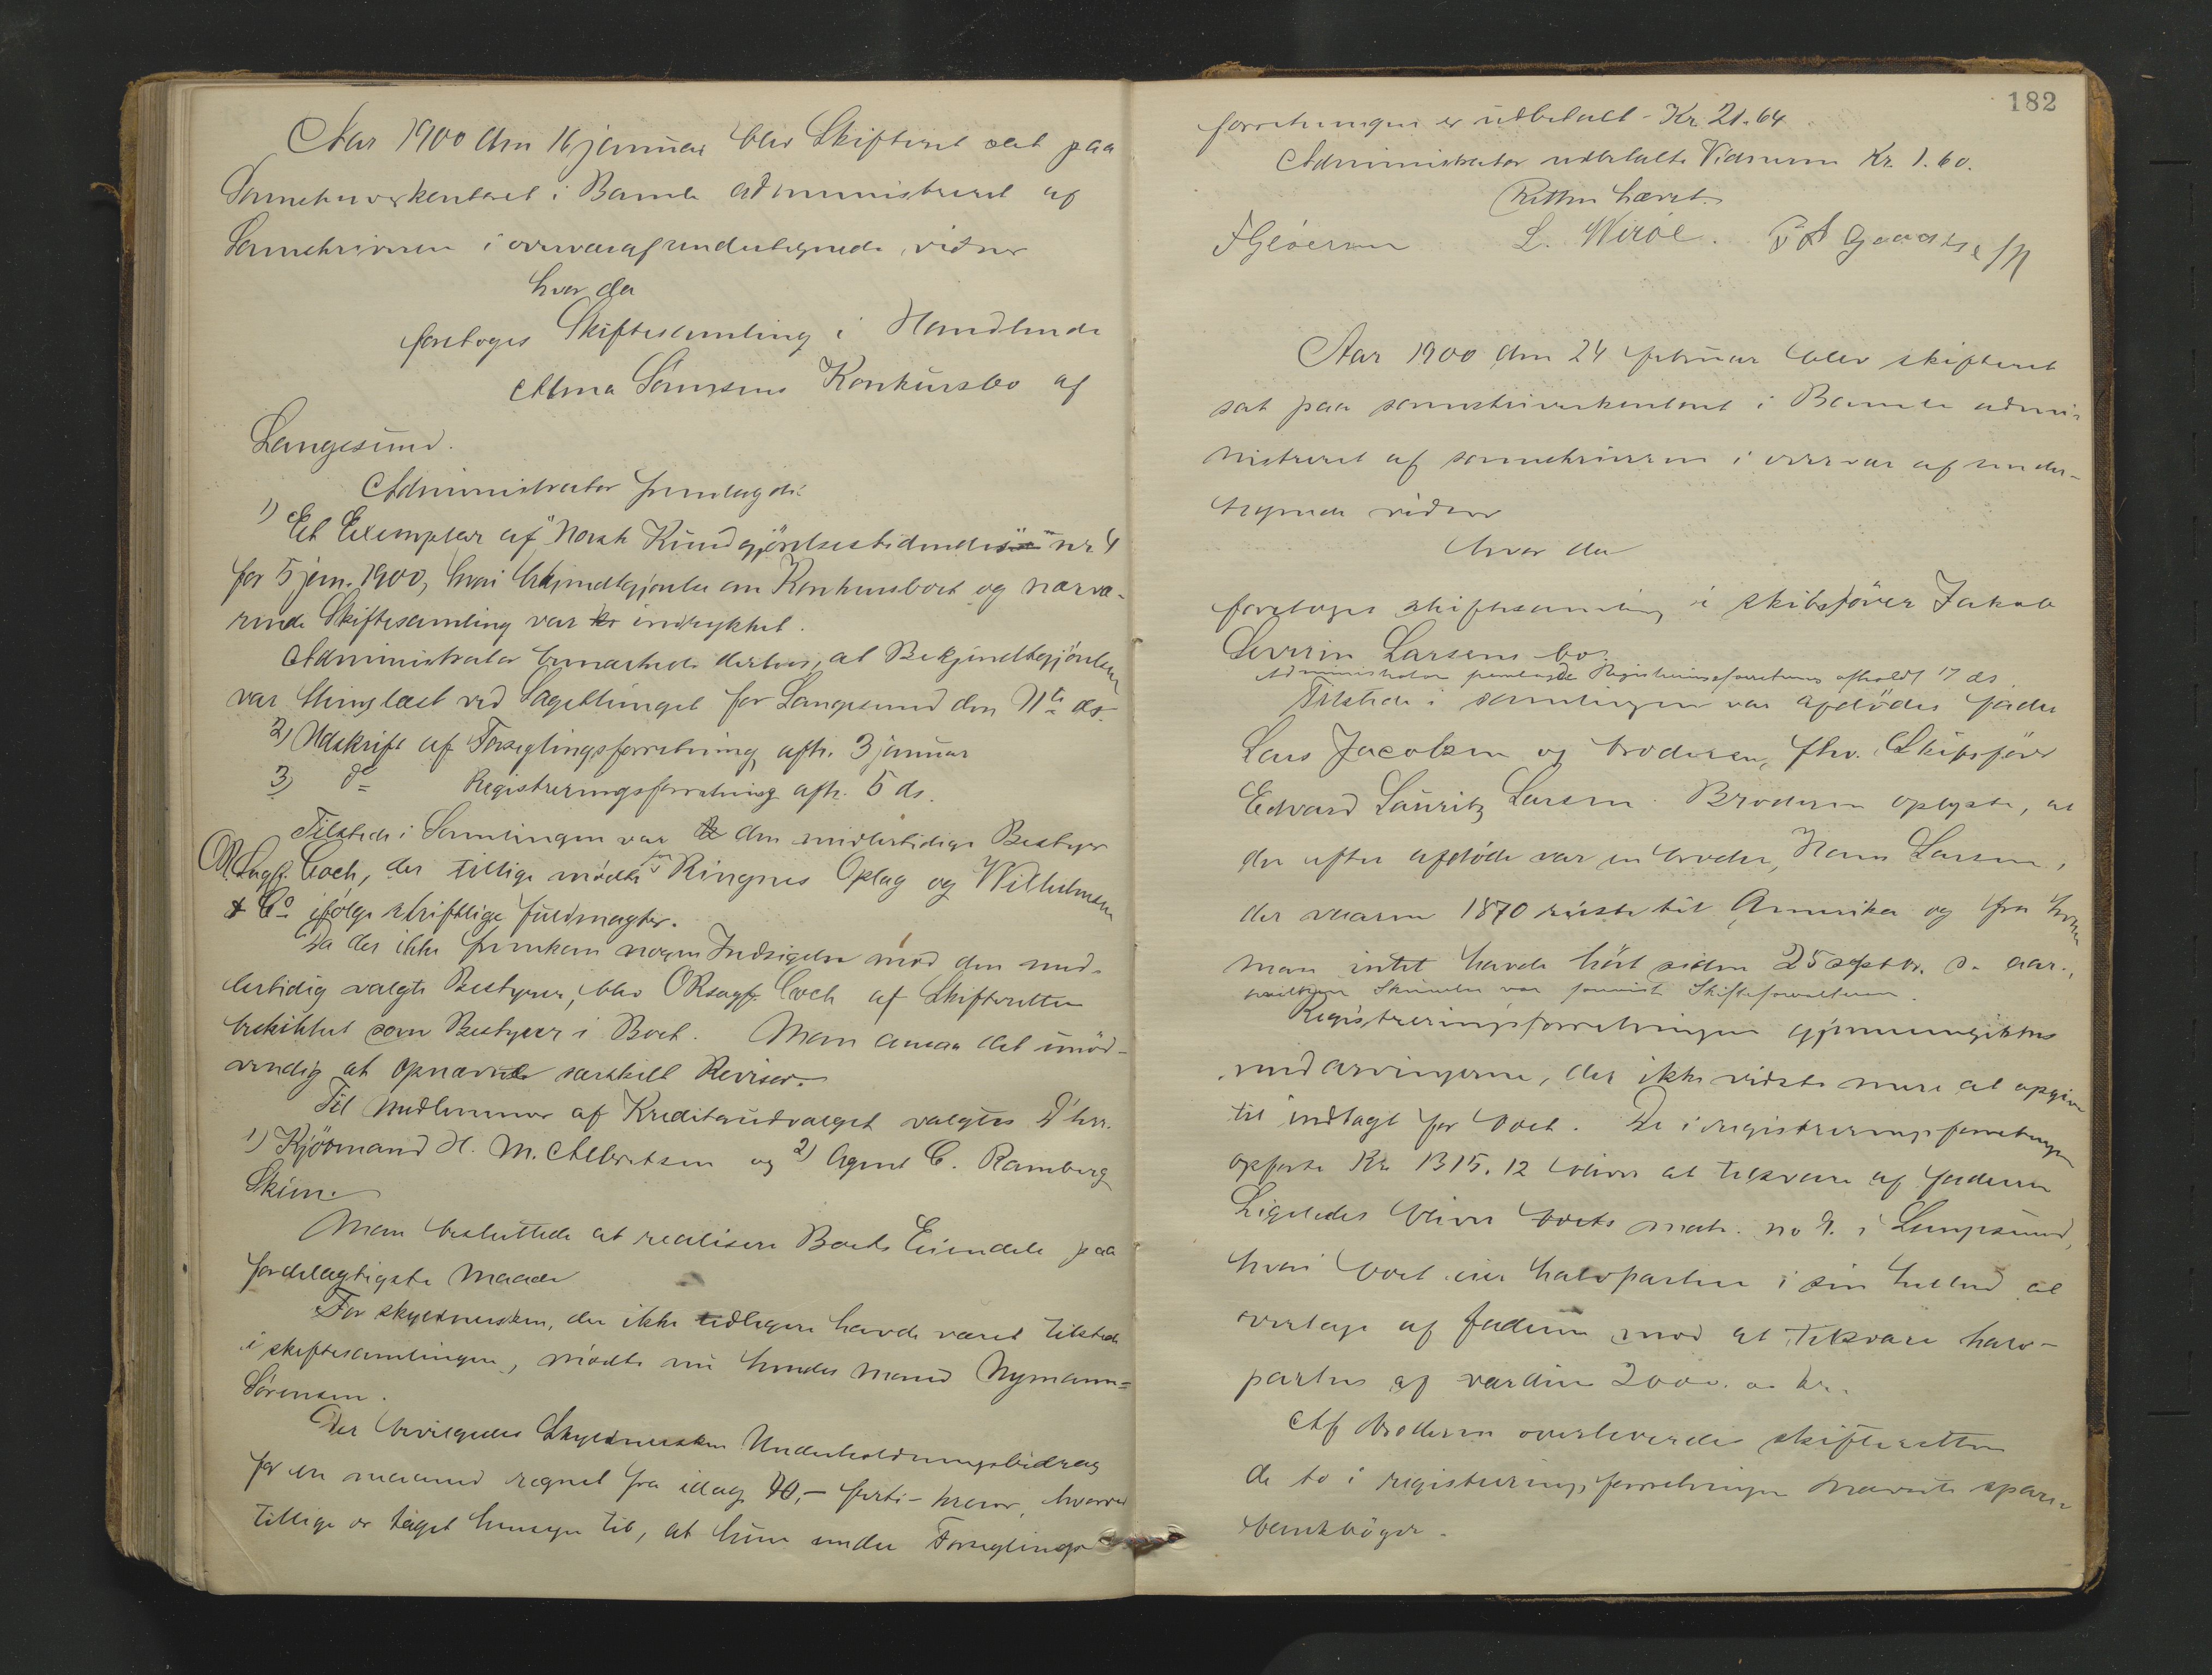 Aar 1900 den 16 januar blev Skifteret sat paa
Sorenskriverkontoret i Bamle administreret af
Sorenskriveren i overvær af undertegnede vidner
hvor da
foretoges Skiftesamling i Handlende
Alma Sørensens Konkursbo af
Langesund.
Administrator fremlagde:
1) Et Exemplar af "Norsk Kundgjørelsestidende" nr 4
for 5 jan. 1900, hvori bekjendtgjørelse om Konkursboet og nærvæ-
rende Skiftesamling var indrykket.
Administrator bemærkede derhos, at Bekjendtgjørelsen
var thinglæst ved Lagthinget for Langesund den 11te ds.
2) Udskrift af Forseglingsforretning afh. 3 januar
3) do Registreringsforretning afh. 5 ds.
Tilstede i Samlingen var den midlertidige Bestyrer
OR.Sagf. Coch, der tillige mødte for Ringnes Oplag og Wilhelmsen
& Co ifølge skriftlige fuldmagter.
Da der ikke fremkom nogen Indsigelse mod den mid-
lertidig valgte Bestyrer, blev ORsagf. Coch af Skifteretten
beskikket som Bestyrer i Boet. Man ansaa det unød-
vendig at opnævne særskilt Revisor.
Til Medlemmer af Kreditorudvalget valgtes D'hrr.
1) Kjøbmand H. M. Albretsen og 2) Agent C. Ramberg
Skien.
Man besluttede at realisere Boets Eiendele paa
fordelagtigste Maade
For skyldnersken, der ikke tidligere havde været tilstede
i skiftesamlingen, mødte nu hendes mand Nymann-
Sørensen.
Der bevilgedes Skyldnersken Underholdningsbidrag
for en maaned regnet fra idag 40,- førti - kroner, hvorved
tillige er taget hensyn til, at hun under Forseglings-
182
forretningen er udbetalt - Kr. 21.64
Administrator udbetalte Vidnerne Kr. 1.60.
Retten hævet.
L. Wirøe.
Aar 1900 den 24 februar blev skifteret
sat paa sorenskriverkontoret i Bamle admi-
nistreret af sorenskriveren i overvær af under-
tegnede vidner
hvor da
foretoges skiftesamling i skibsfører Jakob
Severin Larsens bo.
Administrator fremlagde Registreringsforretning afholdt 17 ds
Tilstede i samlingen var afdødes fader
Lars Jacobsen og broderen, fhv. Skibsfører
Edvard Lauritz Larsen. Broderen oplyste, at
der efter afdøde var en broder, Hans Larsen,
der vaaren 1870 reiste til Amerika og fra hvem
man intet havde hørt siden 25 septbr. s. aar.,
hvilken Skrivelse var forevist Skifteforvalteren.
Registreringsforretningen gjennemgikkes
med arvingerne, der ikke vidste mere at opgive
til indtægt for boet. De i registreringsforretningen
opførte Kr. 1315.12 bliver at tilsvare af faderen
Ligeledes bliver boets matr. no 9. i Langesund,
hvori boet eier halvparten i sin helhed at
overtage af faderen mod at tilsvare halv-
parten af værdien 2000. a kr.
Af broderen overleveredes skifteretten
de to i registreringsforretningen nævnte spare-
bankbøger.